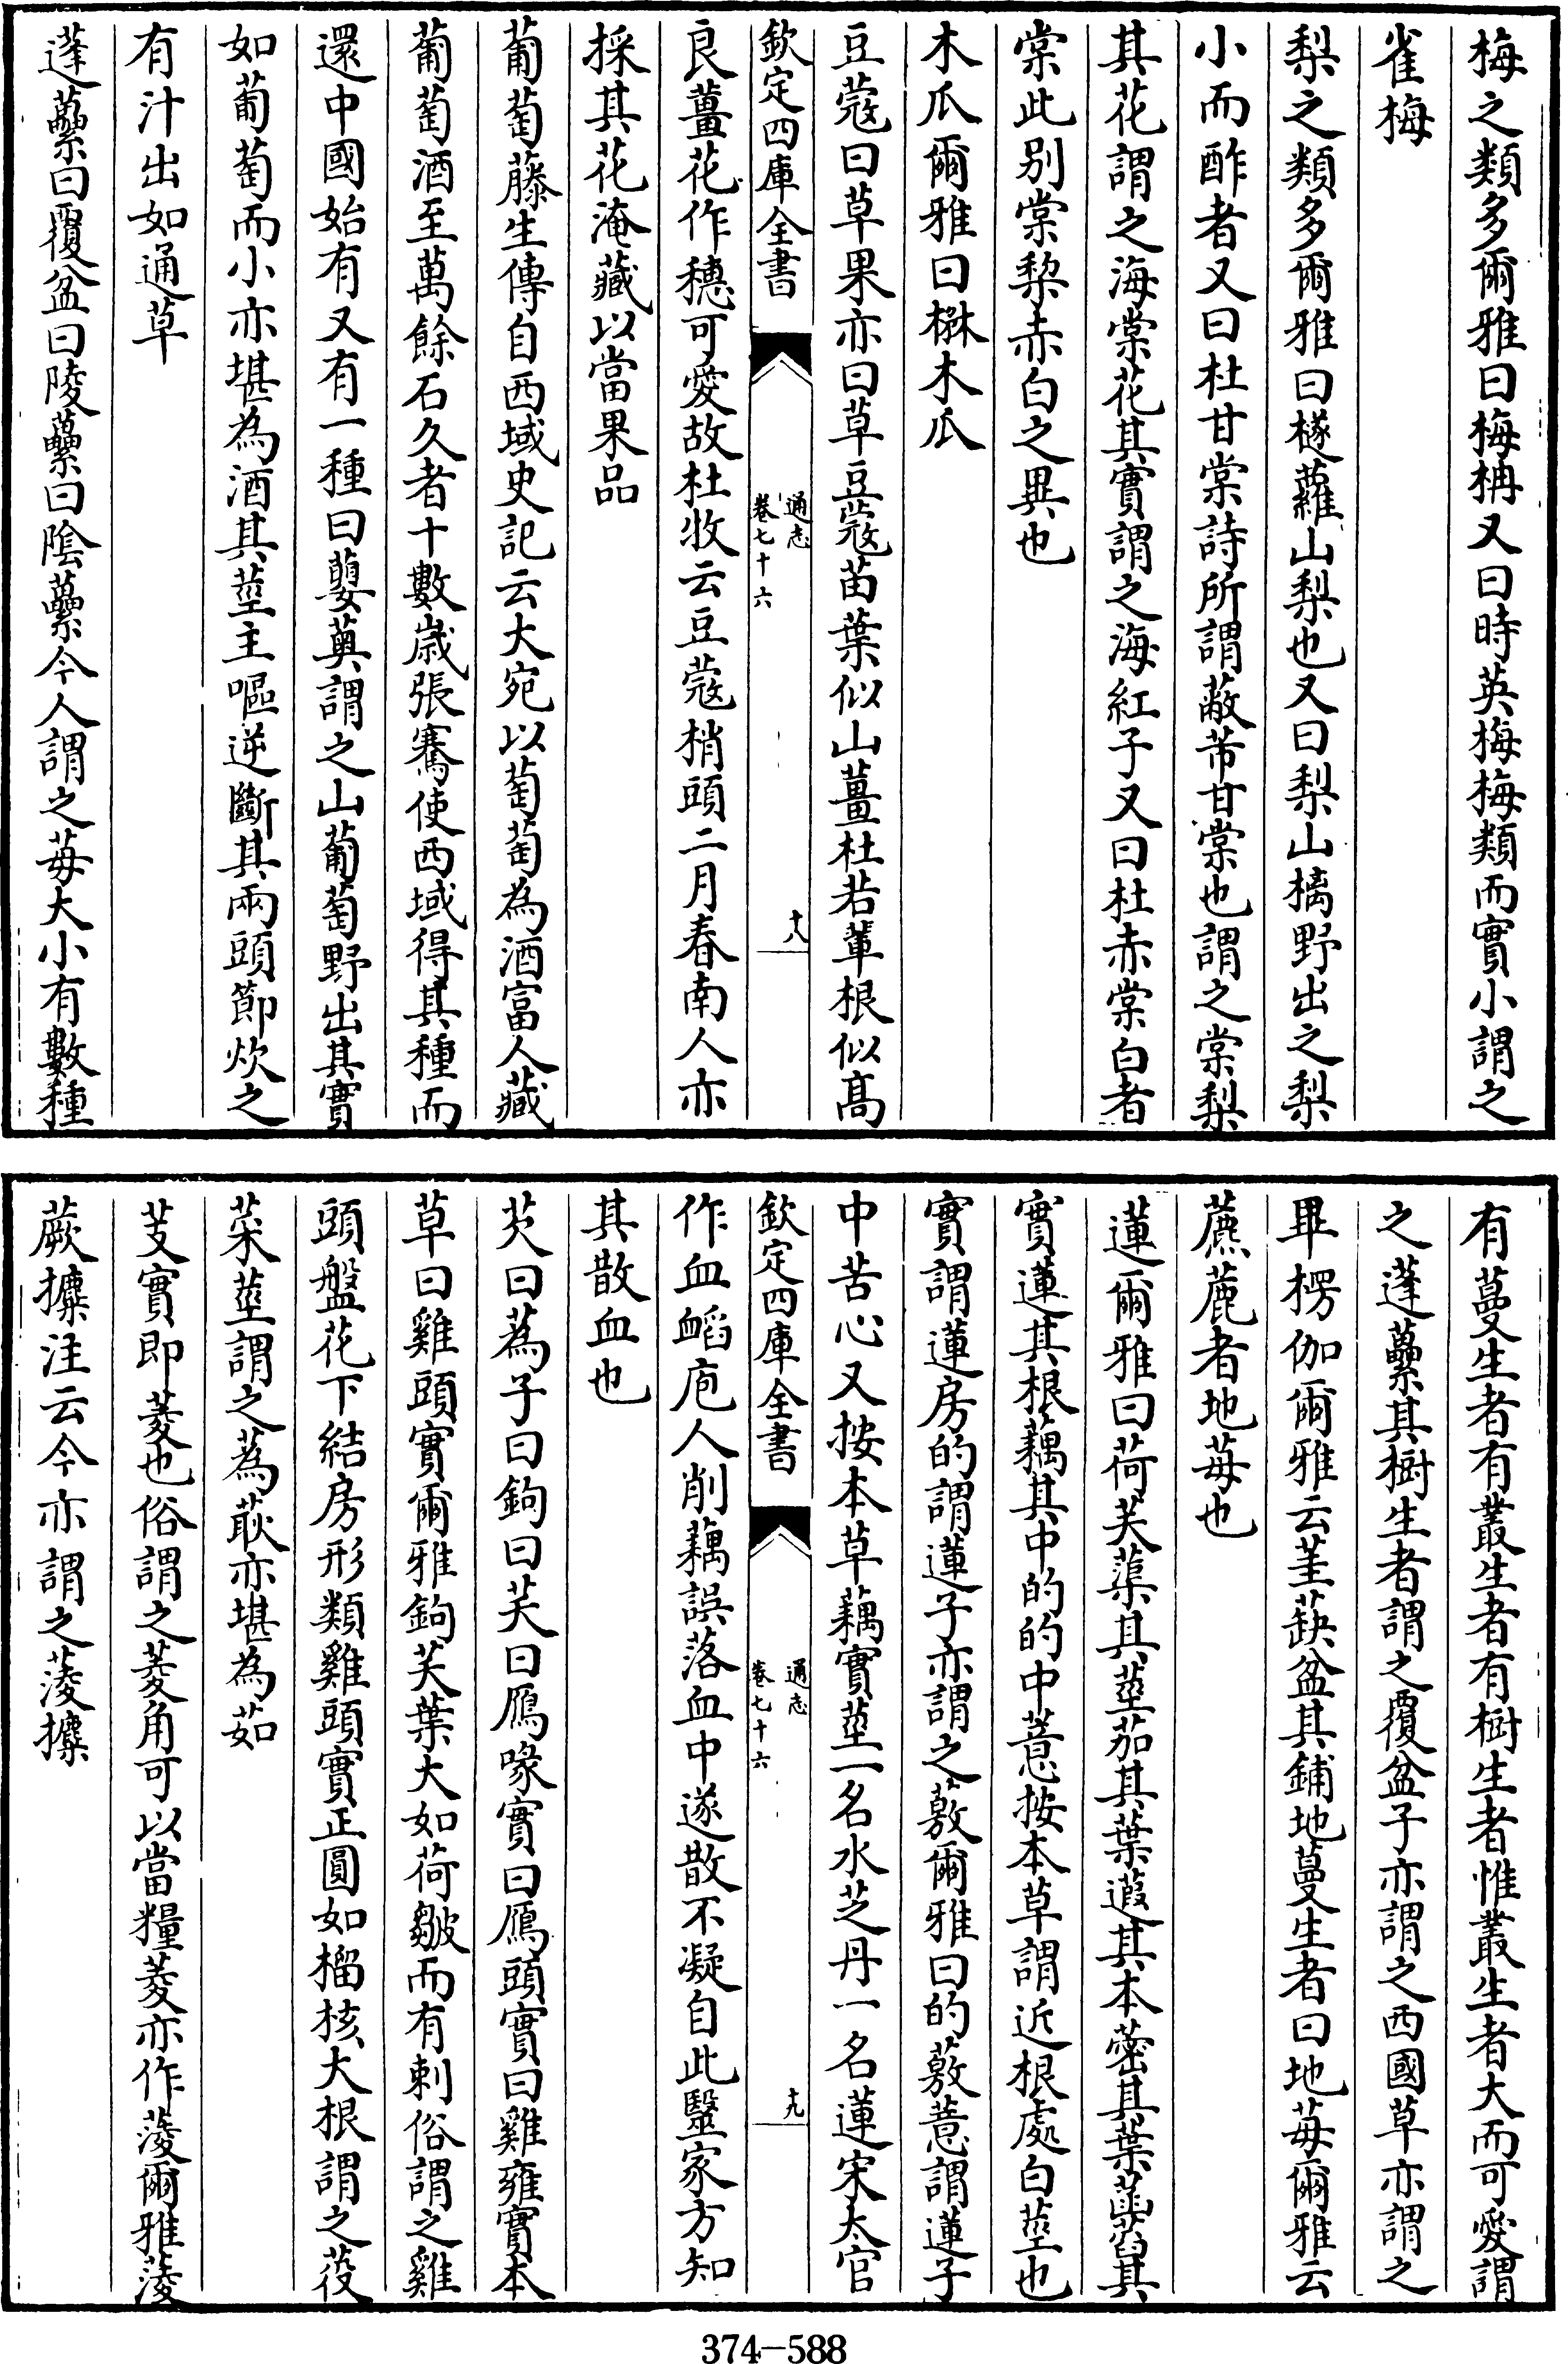 梅之類多爾雅曰梅柟又曰時英梅梅類而實小謂之
雀梅
梨之類多爾雅曰檖蘿山梨也又曰梨山樆野出之梨
小而酢者又曰杜甘棠詩所謂蔽芾甘棠也謂之棠梨
其花謂之海棠花其實謂之海紅子又曰杜赤棠白者
棠此别棠棃赤白之異也
木瓜爾雅曰楙木瓜
豆蔻曰草果亦曰草豆蔻苗葉似山薑杜若輩根似髙
欽定四庫全書
通志
卷七十六
十八
良薑花作穗可愛故杜牧云豆蔻梢頭二月春南人亦
採其花淹藏以當果品
葡萄藤生傳自西域史記云大宛以萄萄為酒富人藏
葡萄酒至萬餘石久者十數歳張騫使西域得其種而
還中國始有又有一種曰蘡薁謂之山葡萄野出其實
如葡萄而小亦堪為酒其莖主嘔逆斷其兩頭節炊之
有汁出如通草
蓬虆曰覆盆曰陵虆曰隂虆今人謂之苺大小有數種
有蔓生者有叢生者有樹生者惟叢生者大而可愛謂
之蓬虆其樹生者謂之覆盆子亦謂之西國草亦謂之
畢楞伽爾雅云堇蒛盆其鋪地蔓生者曰地苺爾雅云
藨麃者地苺也
蓮爾雅曰荷芙蕖其莖茄其葉蕸其本蔤其葉菡萏其
實蓮其根藕其中的的中薏按本草謂近根處白莖也
實謂蓮房的謂蓮子亦謂之薂爾雅曰的薂薏謂蓮子
中苦心又按本草藕實莖一名水芝丹一名蓮宋太官
欽定四庫全書
通志
卷七十六
十九
作血䘓庖人削藕誤落血中遂散不凝自此毉家方知
其散血也
芡曰蒍子曰鉤曰芙曰鴈喙實曰鴈頭實曰雞雍實本
草曰雞頭實爾雅鉤芙葉大如荷皺而有刺俗謂之雞
頭盤花下結房形類雞頭實正圓如榴核大根謂之䓈
菜莖謂之蒍䓳亦堪為茹
芰實即菱也俗謂之菱角可以當糧菱亦作蓤爾雅蓤
蕨攗注云今亦謂之蓤攗
374-588